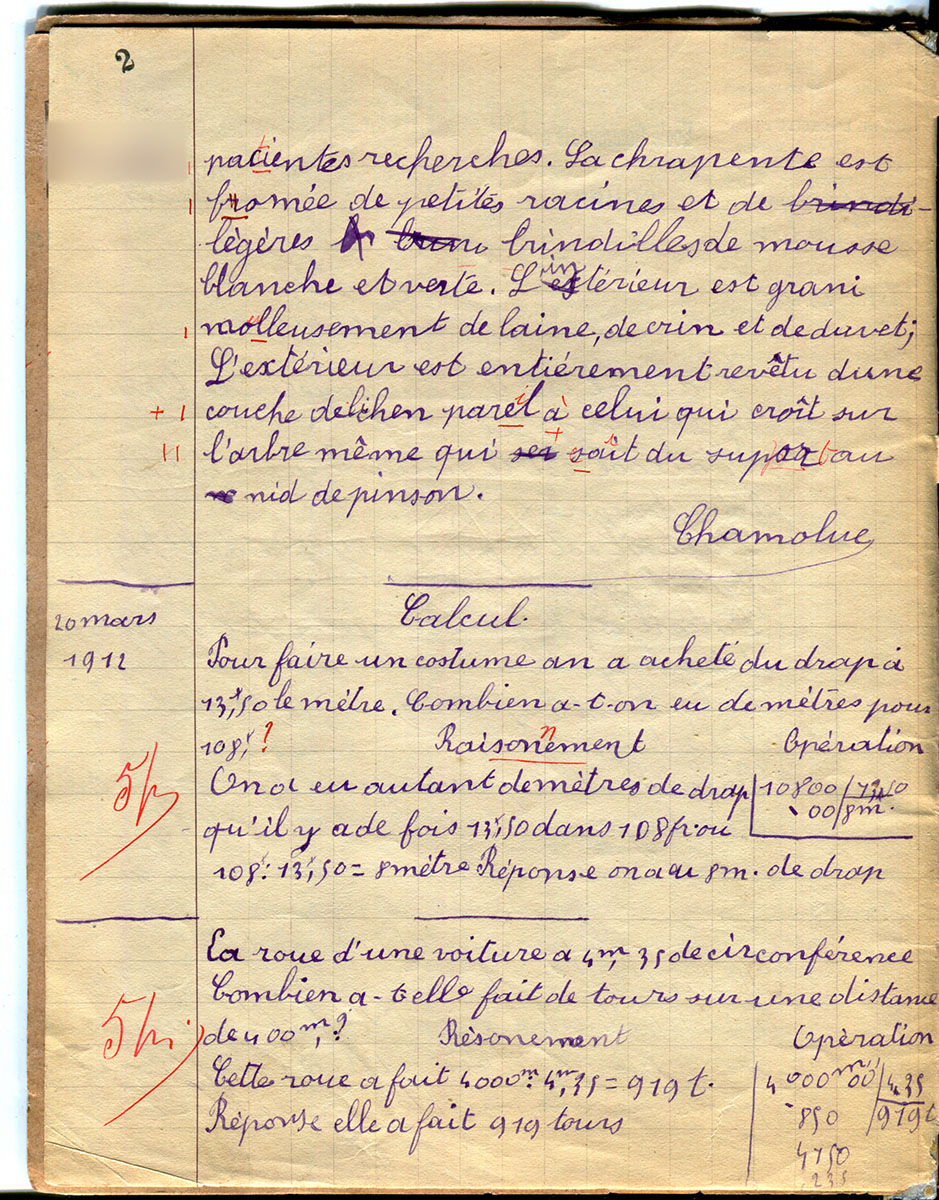 2
patientes recherches. La chrapente est
fromée de petites racines et de brindi-
légères brindilles de mousse
blanche et verte. L'intérieur est grani
molleusement de laine, de crin et de duvet;
L'extérieur est entiérement revêtu dune
+ 1 couche de lichen pareil à celui qui croît sur
11 l'arbre même qui ser sait du suport au
nid de pinson.
Chamolue
20 mars
1912
Calcul.
Pour faire un costume on a acheté du drap à
13f,50 le métre. Combien a-t-on eu de métres pour
108f ?
Raisonnement
Opération
5p
On a eu autant de mètres de drap
qu'il y a de fois 13f,50 dans 108 fr. ou
108f : 13f,50 = 8 métre Réponse on a eu 8 m. de drap
10800 / 1350
00 / 8m.
La roue d'une voiture a 4m, 35 de circonférence
Combien a-t elle fait de tours sur une distance
de 400m, ?
Résonement
Opèration
5p.
Cette roue a fait 4000m : 4m,35 = 919 t.
Réponse elle a fait 919 tours
4000m00 / 4,35
850 / 919 t
4150
235